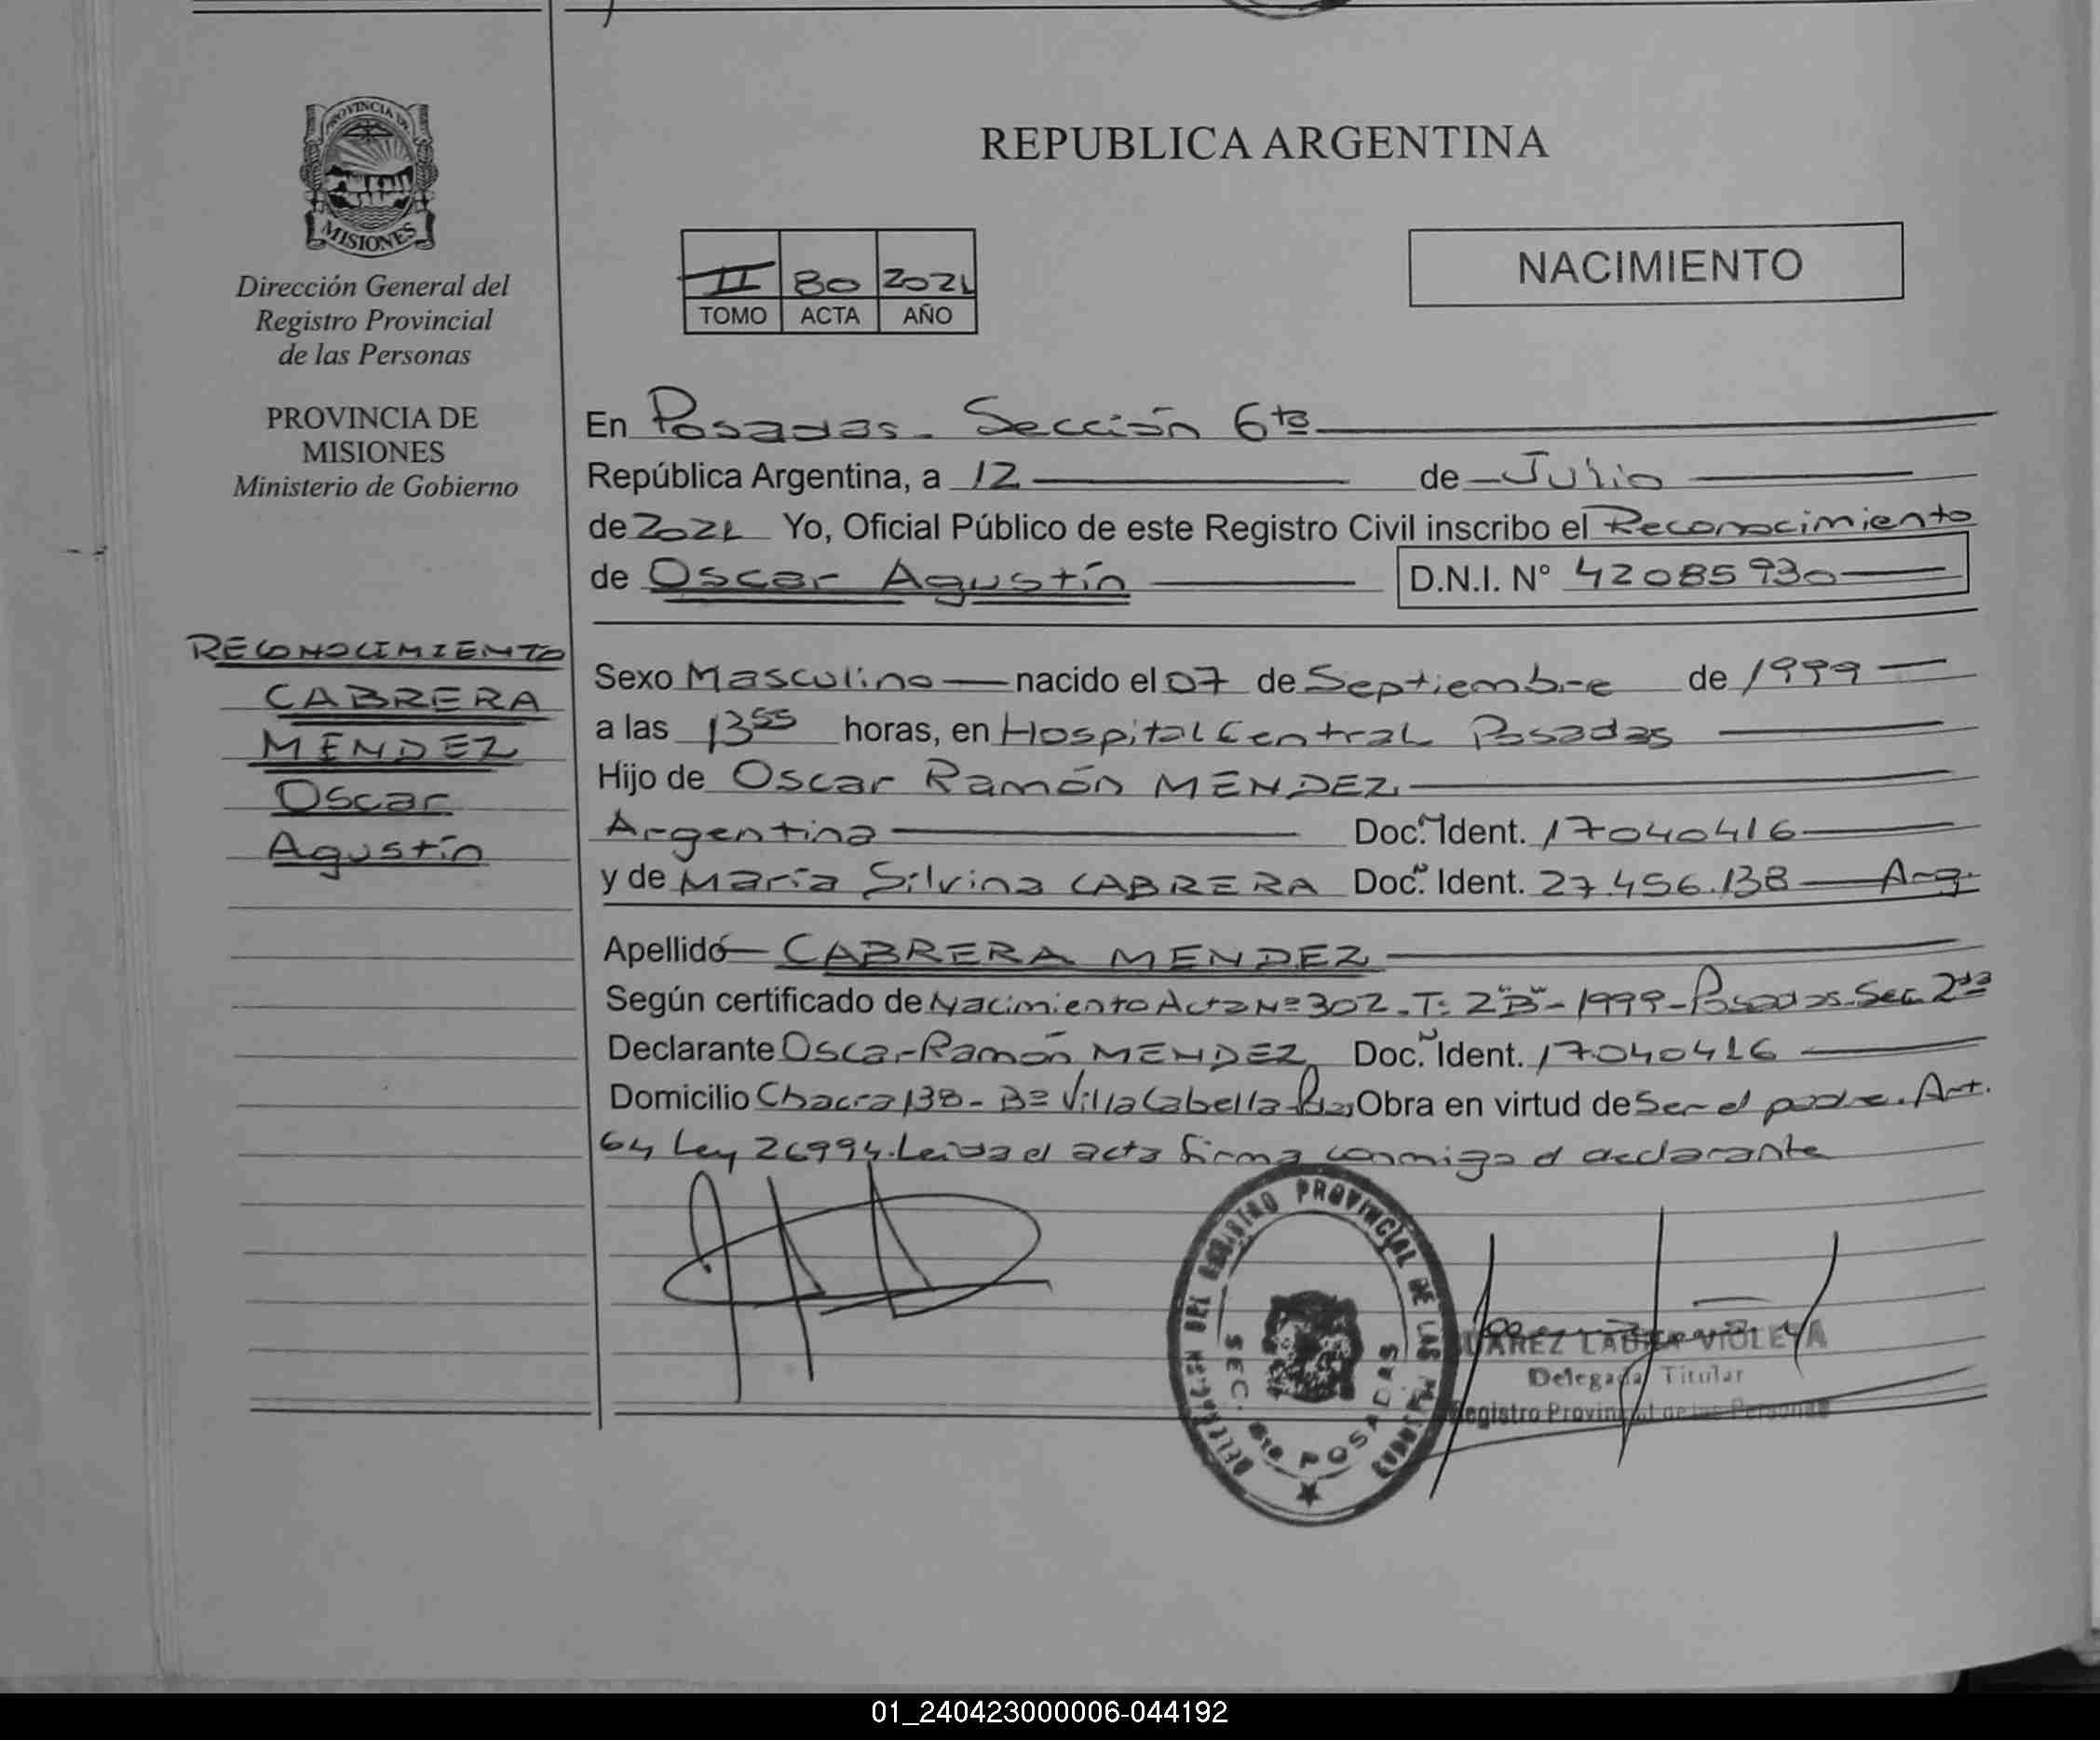 PROVINCIA DE
MISIONES
Dirección General del
Registro Provincial
de las Personas
PROVINCIA DE
MISIONES
Ministerio de Gobierno
RECONOCIMIENTO
CABRERA
MENDEZ
Oscar
Agustín
REPUBLICA ARGENTINA
II 80 2021
TOMO ACTA AÑO
NACIMIENTO
En Posadas - Sección 6ta
República Argentina, a 12 de Julio
de 2021 Yo, Oficial Público de este Registro Civil inscribo el Reconocimiento
de Oscar Agustín D.N.I. N° 42085930
Sexo Masculino nacido el 07 de Septiembre de 1999
a las 13 55 horas, en Hospital Central Posadas
Hijo de Oscar Ramón MENDEZ
Argentina Doc. Ident. 17040416
y de María Silvina CABRERA Doc. Ident. 27.456.138 Arg.
Apellido CABRERA MENDEZ
Según certificado de Nacimiento Acta Nº 302 - T: 2"B" - 1999 - Posadas - Sec. 2da
Declarante Oscar Ramón MENDEZ Doc. Ident. 17040416
Domicilio Chacra 138 - Bº Villa Cabello Obra en virtud de Ser el padre. Art.
64 Ley 26994. Leída el acta firma conmigo el declarante
DELEGACION DEL REGISTRO PROVINCIAL DE LAS PERSONAS
SEC. 6ta POSADAS
LAURA VIOLETA
Delegada Titular
Registro Provincial de las Personas
01_240423000006-044192